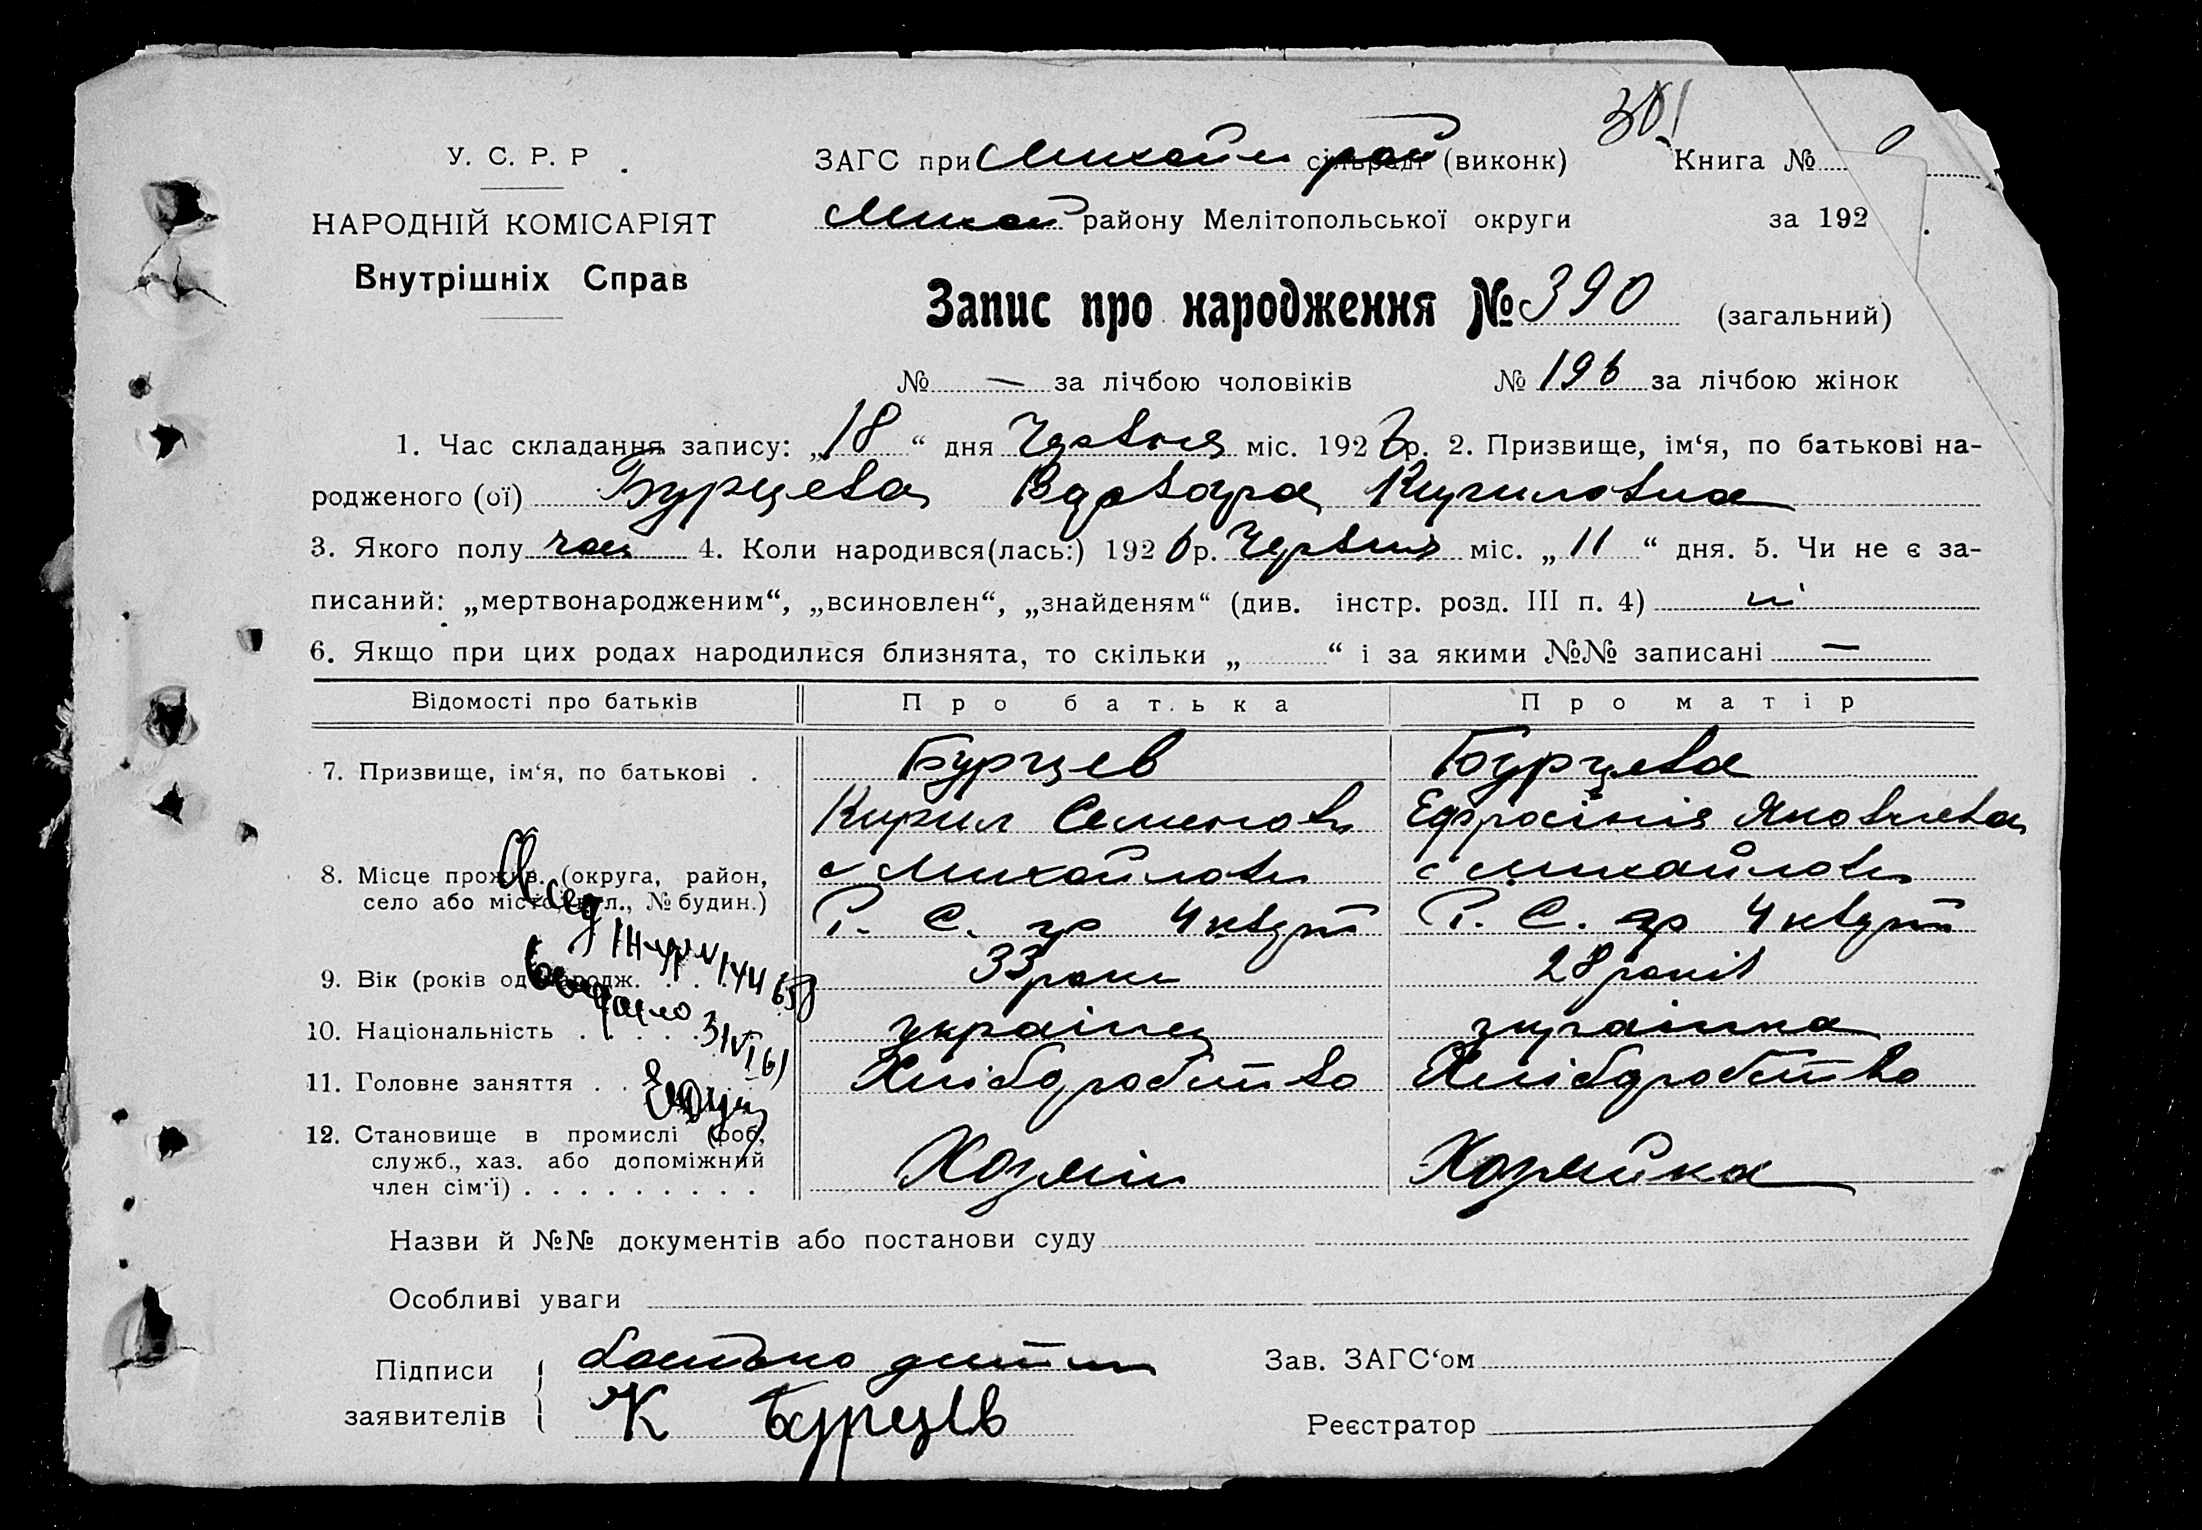 301
У. С. Р. Р.
ЗАГС при Михайл рай сільраді (виконк) Книга №
НАРОДНІЙ КОМІСАРІЯТ
Михай району Мелітопольської округи за 192
Внутрішніх Справ
Запис про народження № 390 (загальний)
№ — за лічбою чоловіків № 196 за лічбою жінок
1. Час складання запису: „18“ дня Червня міс. 1926 р. 2. Призвище, ім‘я, по батькові на-
родженого (ої) Бурцева Варвара Кириловна
3. Якого полу 4. Коли народився(лась:) 1926 р. Червня міс. „11“ дня. 5. Чи не є за-
писаний: „мертвонародженим“, „всиновлен“, „знайденям“ (див. інстр. розд. III п. 4) ні
6. Якщо при цих родах народилися близнята, то скільки „ “ і за якими №№ записані —
Відомості про батьків Про батька Про матір
7. Призвище, ім‘я, по батькові . Бурцев Бурцева
Кирил Семенов Ефросінія Яковлева
8. Місце прожив. (округа, район, с Михайловк с Михайловк
село або місто, вул., № будин.) Р. С. гр 4 кварт Р. С. гр 4 кварт
9. Вік (років од народж. . . . 33 роки 28 років
10. Національність . . . . . українец українка
11. Головне заняття . . Хліборобство Хліборобство
12. Становище в промислі (роб,
служб., хаз. або допоміжний Хозяін Хозяйка
член сім‘ї) . . . . . . . . .
Назви й №№ документів або постанови суду
Особливі уваги
Підписи батько дитини Зав. ЗАГС‘ом
заявителів К Бурцев Реєстратор